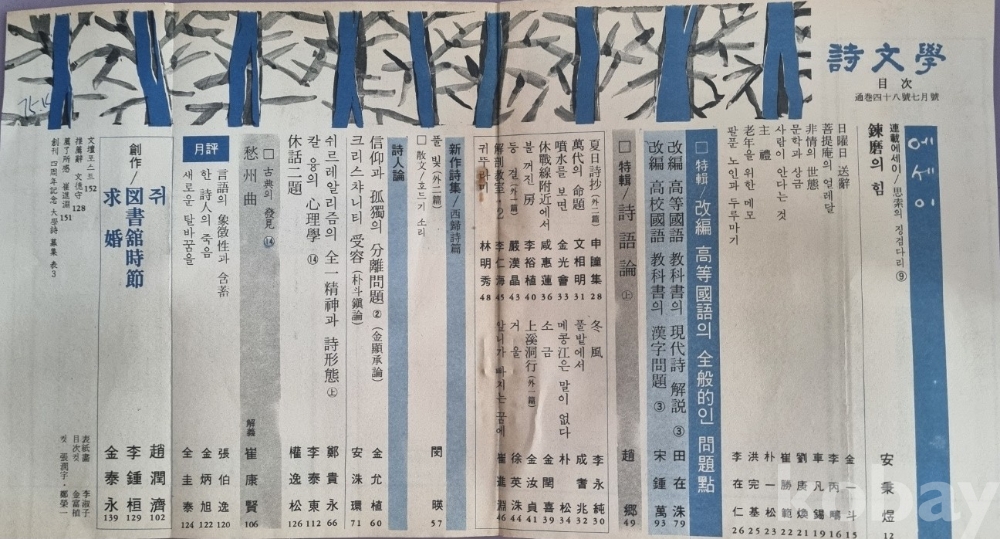 詩文學
目次
通巻四十八號七月號
에세이
連載에세이/思索의 징검다리 ⑨
鍊磨의 힘 安秉煜 12
日曜日 送辭 金一斗 15
菩提庵의 얼레달
非情의 世態
文學과 상금
사람이 안다는 것
主禮 朴一松
老年을 위한 메모 洪完基 25
팔푼 노인과 두루마기 李在仁 26
□ 特輯/改編 高等國語의 全般的인 問題點
改編 高等國語 教科書의 現代詩 解説 ③ 田在洙 79
改編 高校國語 教科書의 漢字問題 ③ 宋鍾萬 93
□ 特輯/詩語論 ㊤ 趙鄕 49
夏日詩抄 (外二篇) 申瞳集 28
萬代의 命題 文相明 31
噴水를 보면 金光會 33
休戰線附近에서 咸惠蓮 36
불 꺼진 房 李裕植 40
둥 결 (外一篇) 嚴漢晶 43
解剖教室・2 李仁海 45
귀뚜라미 林明秀 48
冬風 李永純 30
풀밭에서 成耆兆 32
메콩江은 말이 없다 朴松 34
소금 金閏喜 39
上溪洞行 (外一篇) 金汝貞 41
거울 徐英洙 44
新作詩集/西歸詩篇
풀빛 (外二篇)
□ 散文/호드기 소리 閔暎 57
詩人論
信仰과 孤獨의 分離問題 ② (金顯承論) 金允植 60
크리스챠니티 受容 (朴斗鎭論) 安洙環 71
쉬르레알리즘의 全一精神과 詩形態 ㊤ 鄭貴永 66
칼 융의 心理學 ⑭ 李泰東 44
休話二題 權逸松 126
□ 古典의 發見 ⑭
愁州曲 解義 崔康賢 106
月評
言語의 象徵性과 含蓄 張伯逸 120
한 詩人의 죽음 金炳旭 122
새로운 탈바꿈을 全圭泰 124
創作/
쥐 趙潤濟 102
図書舘時節 李鍾桓 129
求婚 金泰永 139
文壇포스트 152
推薦辭 文德守 128
薦了所感 崔進淵 151
創刊 四周年記念 大學詩 募集 表3
表紙畫 李淑子
目次컷 金富植
컷 張潤宇・鄭榮一